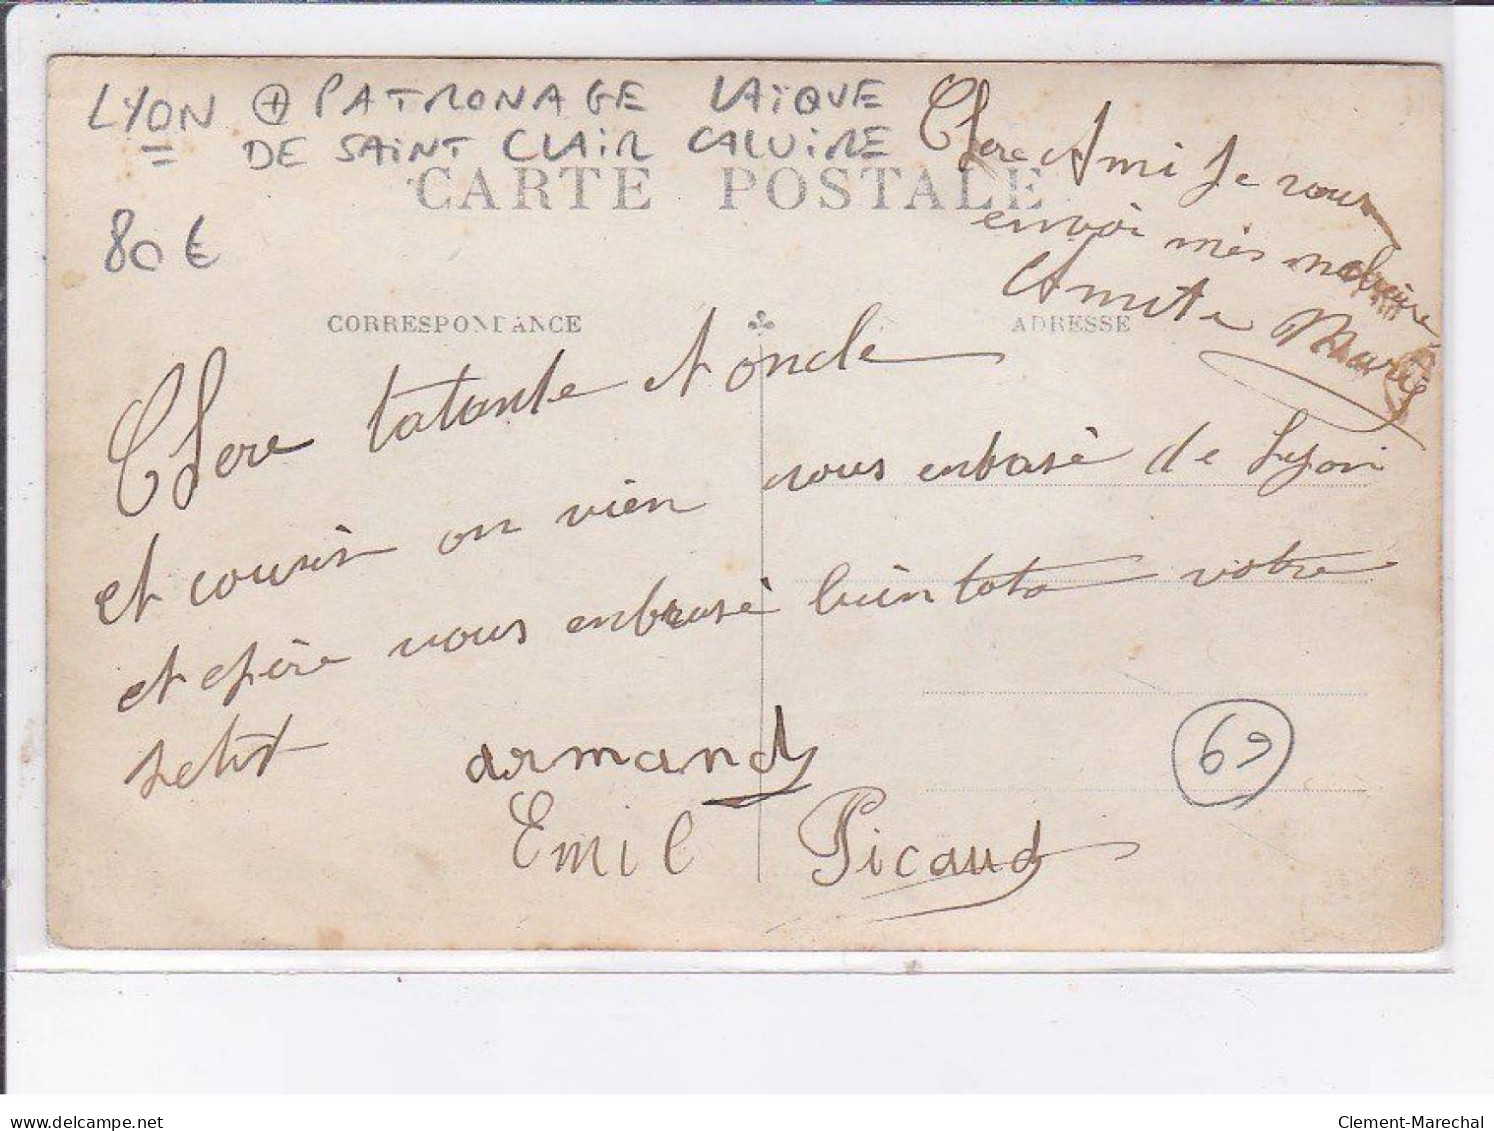 LYON + PATRONAGE LAÏQUE
DE SAINT CLAIR CALUIRE
CARTE POSTALE
80 €
Chere Ami Je vous
envoi mes
Amite Marie
CORRESPONDANCE
ADRESSE
Chere tatante et oncle
et cousin on vien vous enbrasè de Lyon
et espère vous enbrasè bientoto votre
armand
Emil Picaud
69
www.delcampe.net
Clement-Marechal